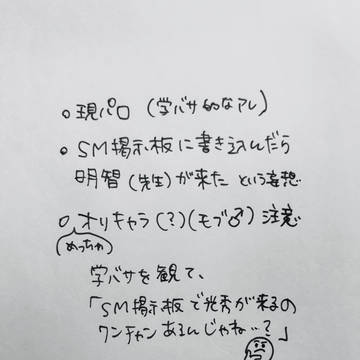 ○現パロ (学バサ的なアレ)
○SM掲示板に書き込んだら
明智(先生)が来た という妄想
○オリキャラ(?)(モブ♂)注意
めっちゃ
学バサを観て、
「SM掲示板で光秀が来るの
ワンチャンあるんじゃね…?」